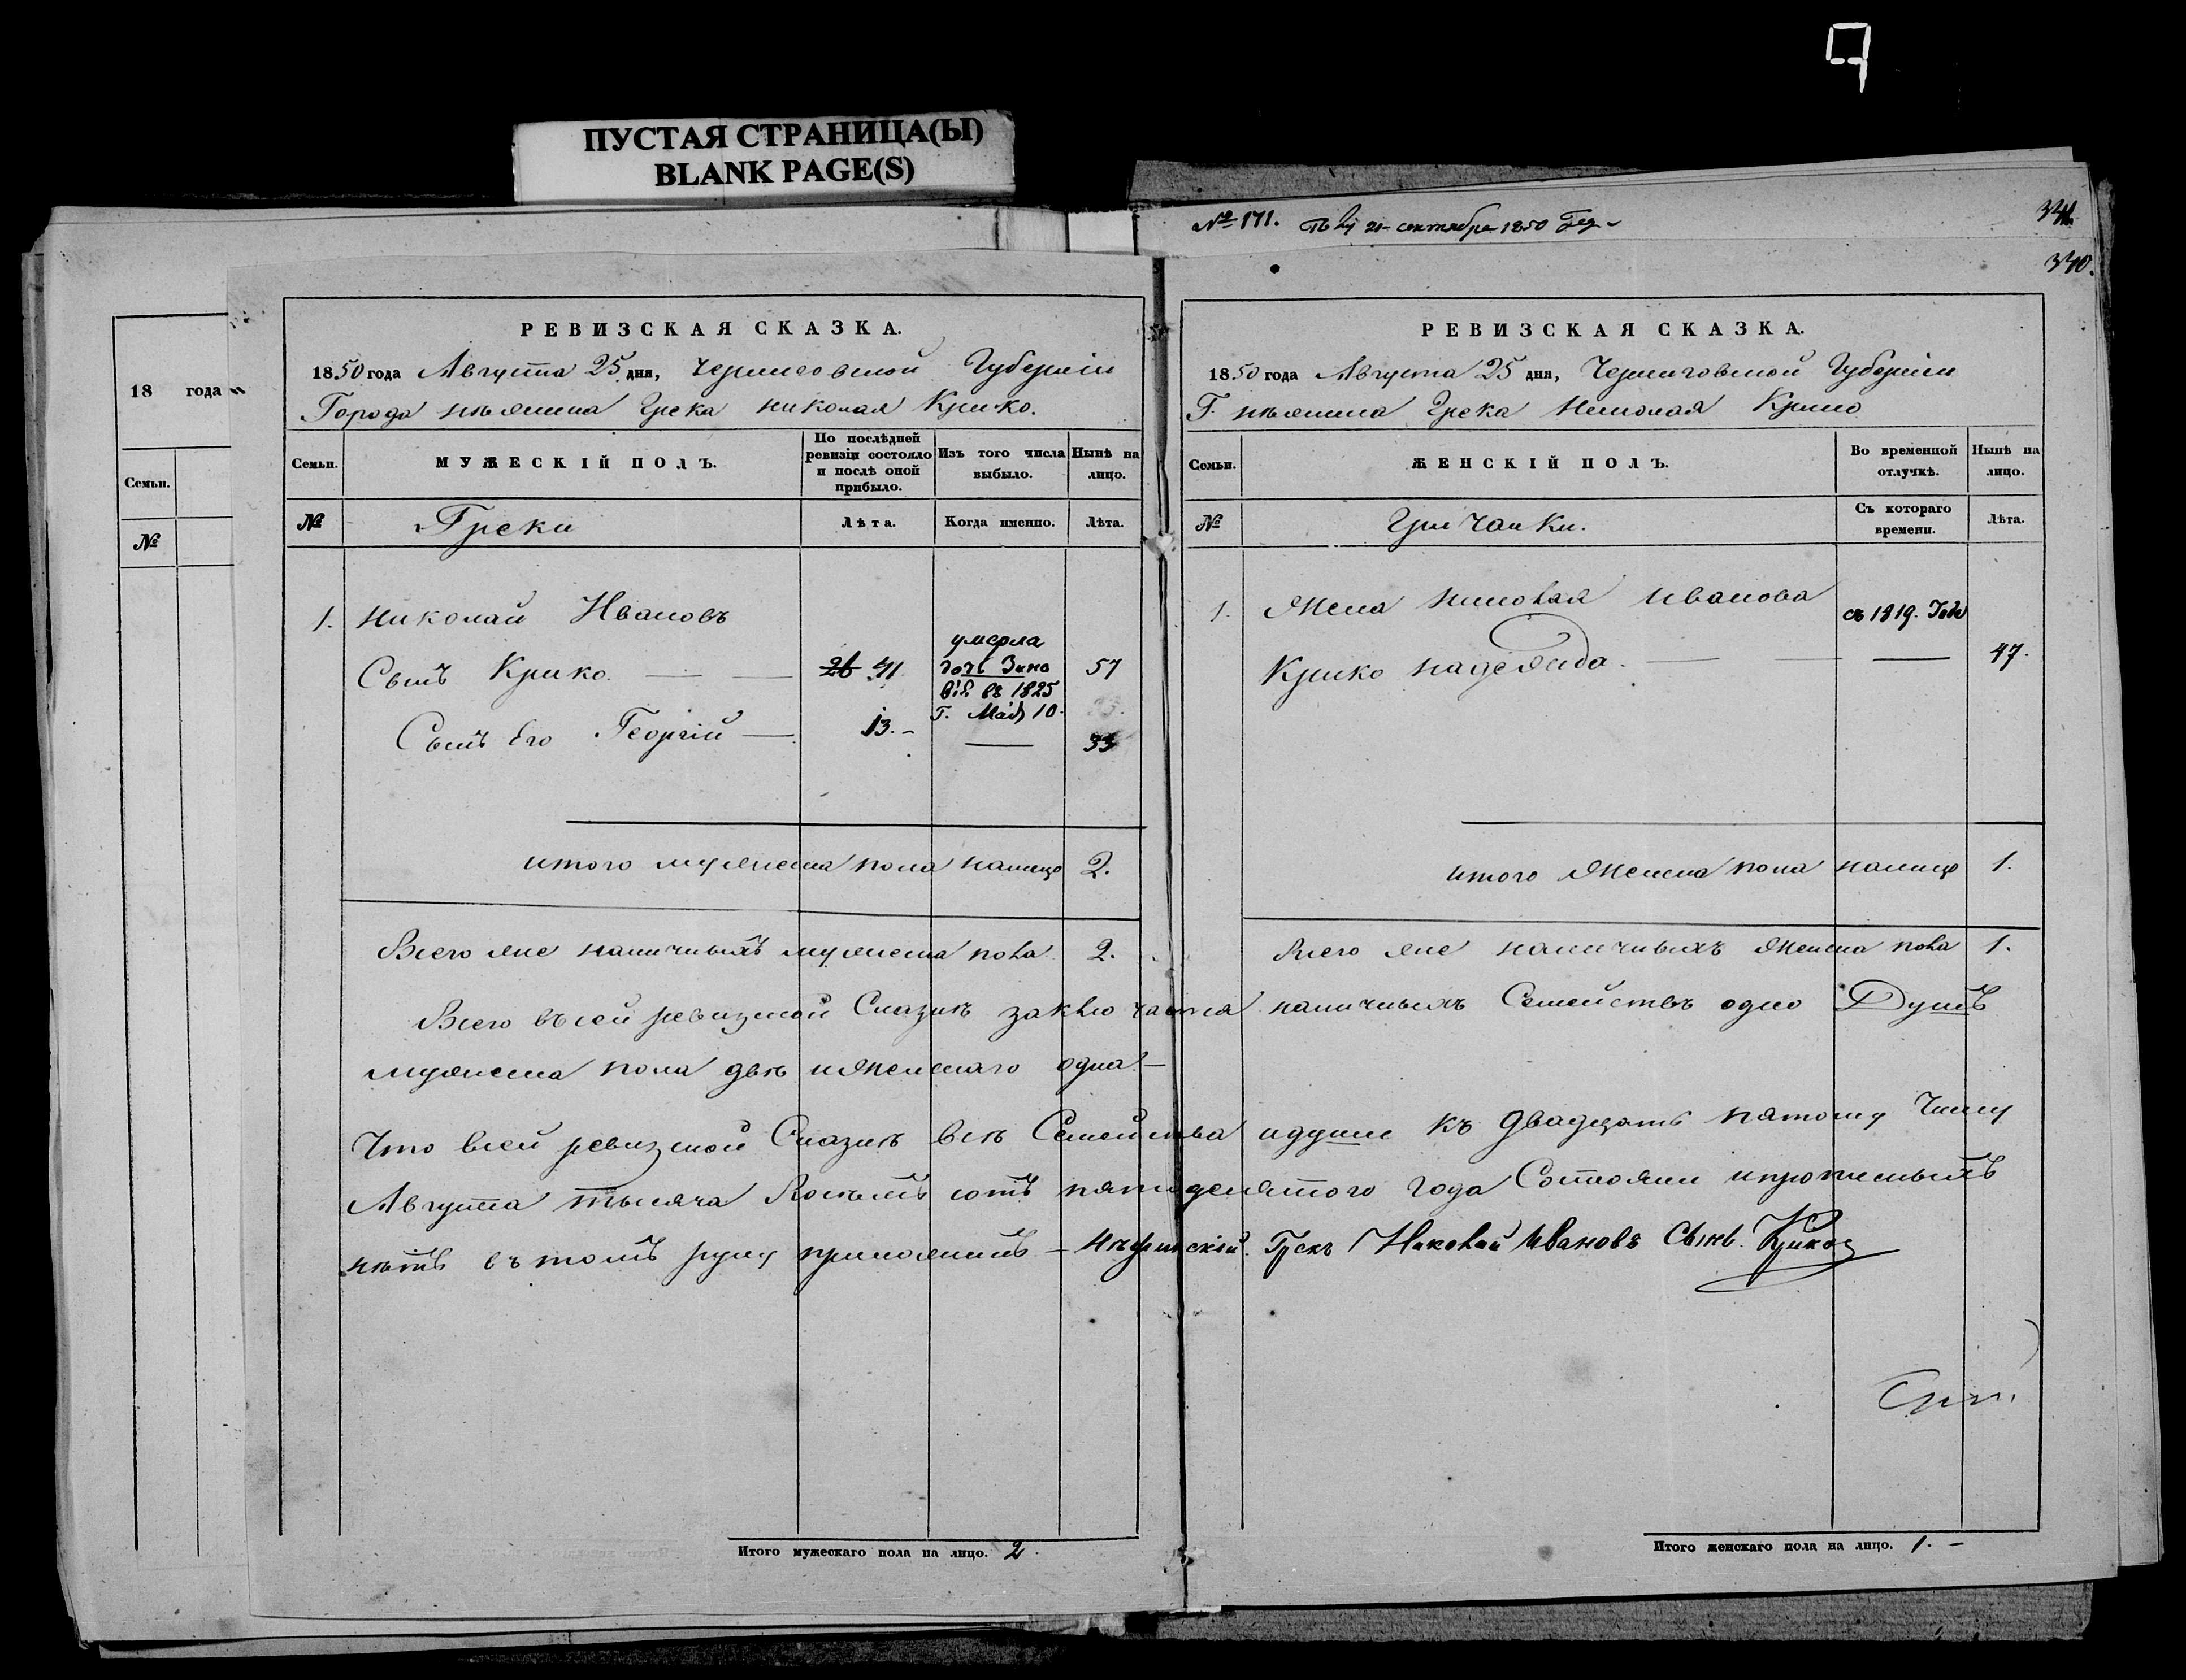 ПУСТАЯ СТРАНИЦА(Ы)
BLANK PAGE(S)
18 года
Семьи.
№
РЕВИЗСКАЯ СКАЗКА.
1850 года Августа 25 дня, Черниговской Губерніи
Города нѣжина Грека николая Крико.
Семьи.
МУЖЕСКІЙ ПОЛЪ.
По послѣдней ревизіи состояло и послѣ оной прибыло.
Изъ того числа выбыло.
Нынѣ на лицо.
№
Греки
Лѣта.
Когда именно.
Лѣта.
1. николай Ивановъ
Сынъ Крико. — — 26 41 57
умерла
дочь
въ 1825
Г. 10.
Сынъ его Георгій — 13. — — 33
итого мужеска пола налицо 2.
Всего же наличныхъ мужеска пола 2.
№ 171. 21 сентября 1850
341
340.
РЕВИЗСКАЯ СКАЗКА.
1850 года Августа 25 дня, Черниговской Губерніи
Г. нѣжина Грека Николая Крико
Семьи.
ЖЕНСКІЙ ПОЛЪ.
Во временной отлучкѣ.
Нынѣ на лицо.
№
Гричанки.
Съ котораго времени.
Лѣта.
1. Жена николая иванова съ 1819. Года
Крико надежда. — — 47.
итого женска пола налицо 1.
Всего же наличныхъ женска пола 1.
Всего въ сей ревизской Сказкѣ заключается наличныхъ Семействъ одно Душъ
мужеска пола двѣ и женскаго одна —
Что в сей ревизской Сказкѣ всѣ Семейства идуши къ двадцать пятому Числу
Августа тысяча Восемь сотъ пятидесятого года Состояли и прописныхъ
нѣтъ въ томъ руку приложилъ — Нѣжинскій. Грекъ Николай Ивановъ Сынъ. Крико
Итого мужескаго пола на лицо. 2.
Итого женскаго пола на лицо. 1. —